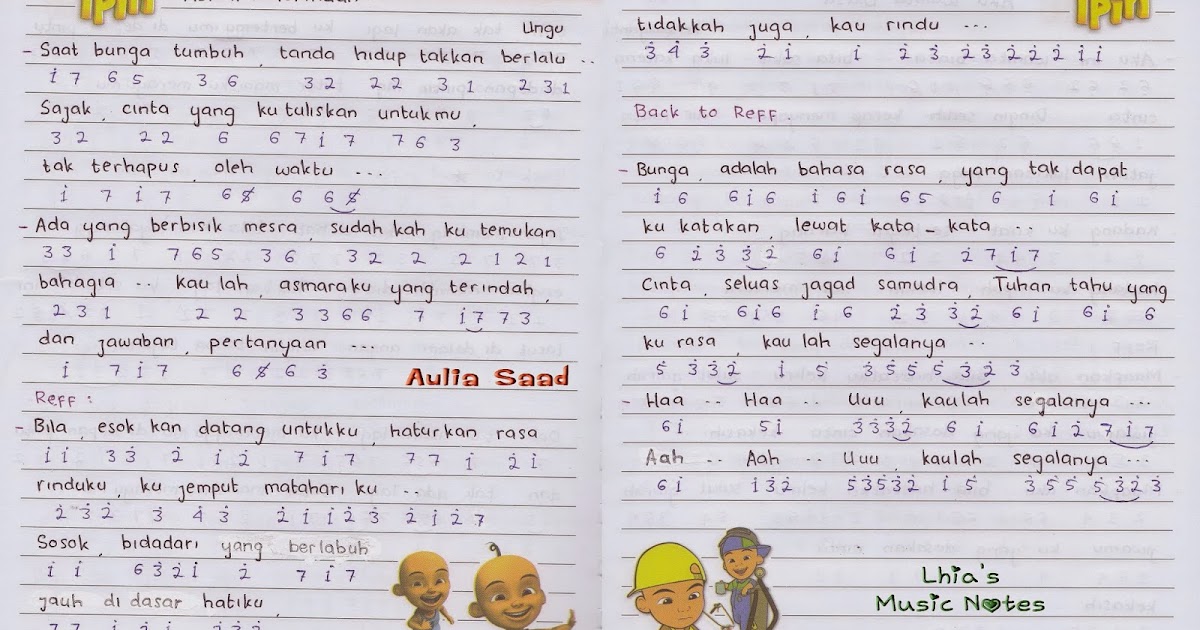 IPIN
Ungu
- Saat bunga tumbuh, tanda hidup takkan berlalu ..
i 7 6 5 3 6 3 2 2 2 3 1 2 3 1
Sajak, cinta yang ku tuliskan untukmu,
3 2 2 2 6 6 7 i 7 7 6 3
tak terhapus, oleh waktu ...
i 7 i 7 6 8 6 6 8
- Ada yang berbisik mesra, sudah kah ku temukan
3 3 i 7 6 5 3 6 3 2 2 2 1 2 1
bahagia .. kau lah, asmaraku yang terindah
2 3 1 2 2 3 3 6 6 7 i 7 7 3
dan jawaban, pertanyaan ...
i 7 i 7 6 8 6 3
Aulia Saad
Reff :
- Bila, esok kan datang untukku, haturkan rasa
i i 3 3 2 i 2 7 i 7 7 7 i 2 i
rinduku, ku jemput matahari ku ..
2 3 2 3 4 3 2 i i 2 3 2 i 2 7
Sosok, bidadari yang berlabuh
i i 6 3 2 i 2 7 i 7
jauh di dasar hatiku,
IPIN
tidakkah juga, kau rindu ...
3 4 3 2 i i 2 3 2 3 2 2 2 i i
Back to Reff
- Bunga, adalah bahasa rasa, yang tak dapat
i 6 6 i 6 i 6 i 6 5 6 i 6 i
ku katakan, lewat kata - kata ...
6 2 3 3 2 6 i 6 i 2 7 i 7
Cinta, seluas jagad samudra, Tuhan tahu yang
6 i 6 i 6 i 6 2 3 3 2 6 i 6 i 6
ku rasa, kau lah segalanya ..
5 3 3 2 i 5 3 5 5 5 3 2 3
- Haa .. Haa .. Uuu, kaulah segalanya ...
6 i 5 i 3 3 3 2 6 i 6 i 2 7 i 7
Aah .. Aah .. Uuu, kaulah segalanya ...
6 i i 3 2 5 3 5 3 2 i 5 3 5 5 5 3 2 3
Lhia's
Music Notes